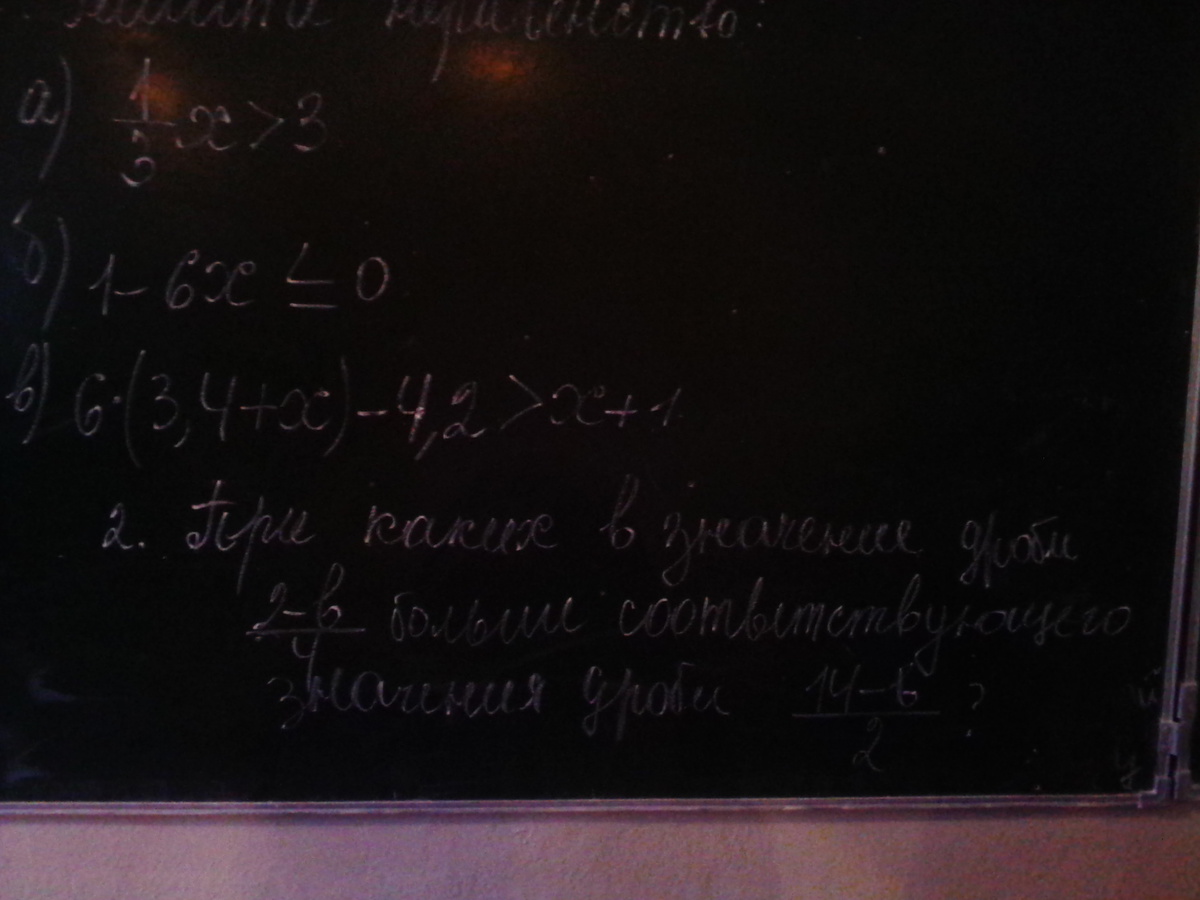 неравенство:
а) 1/3 x > 3
б) 1 - 6x ≤ 0
в) 6·(3,4+x) - 4,2 > x + 1
2. При каких в значение дроби
2-в/4 больше соответствующего
значения дроби 14-в/2 ?